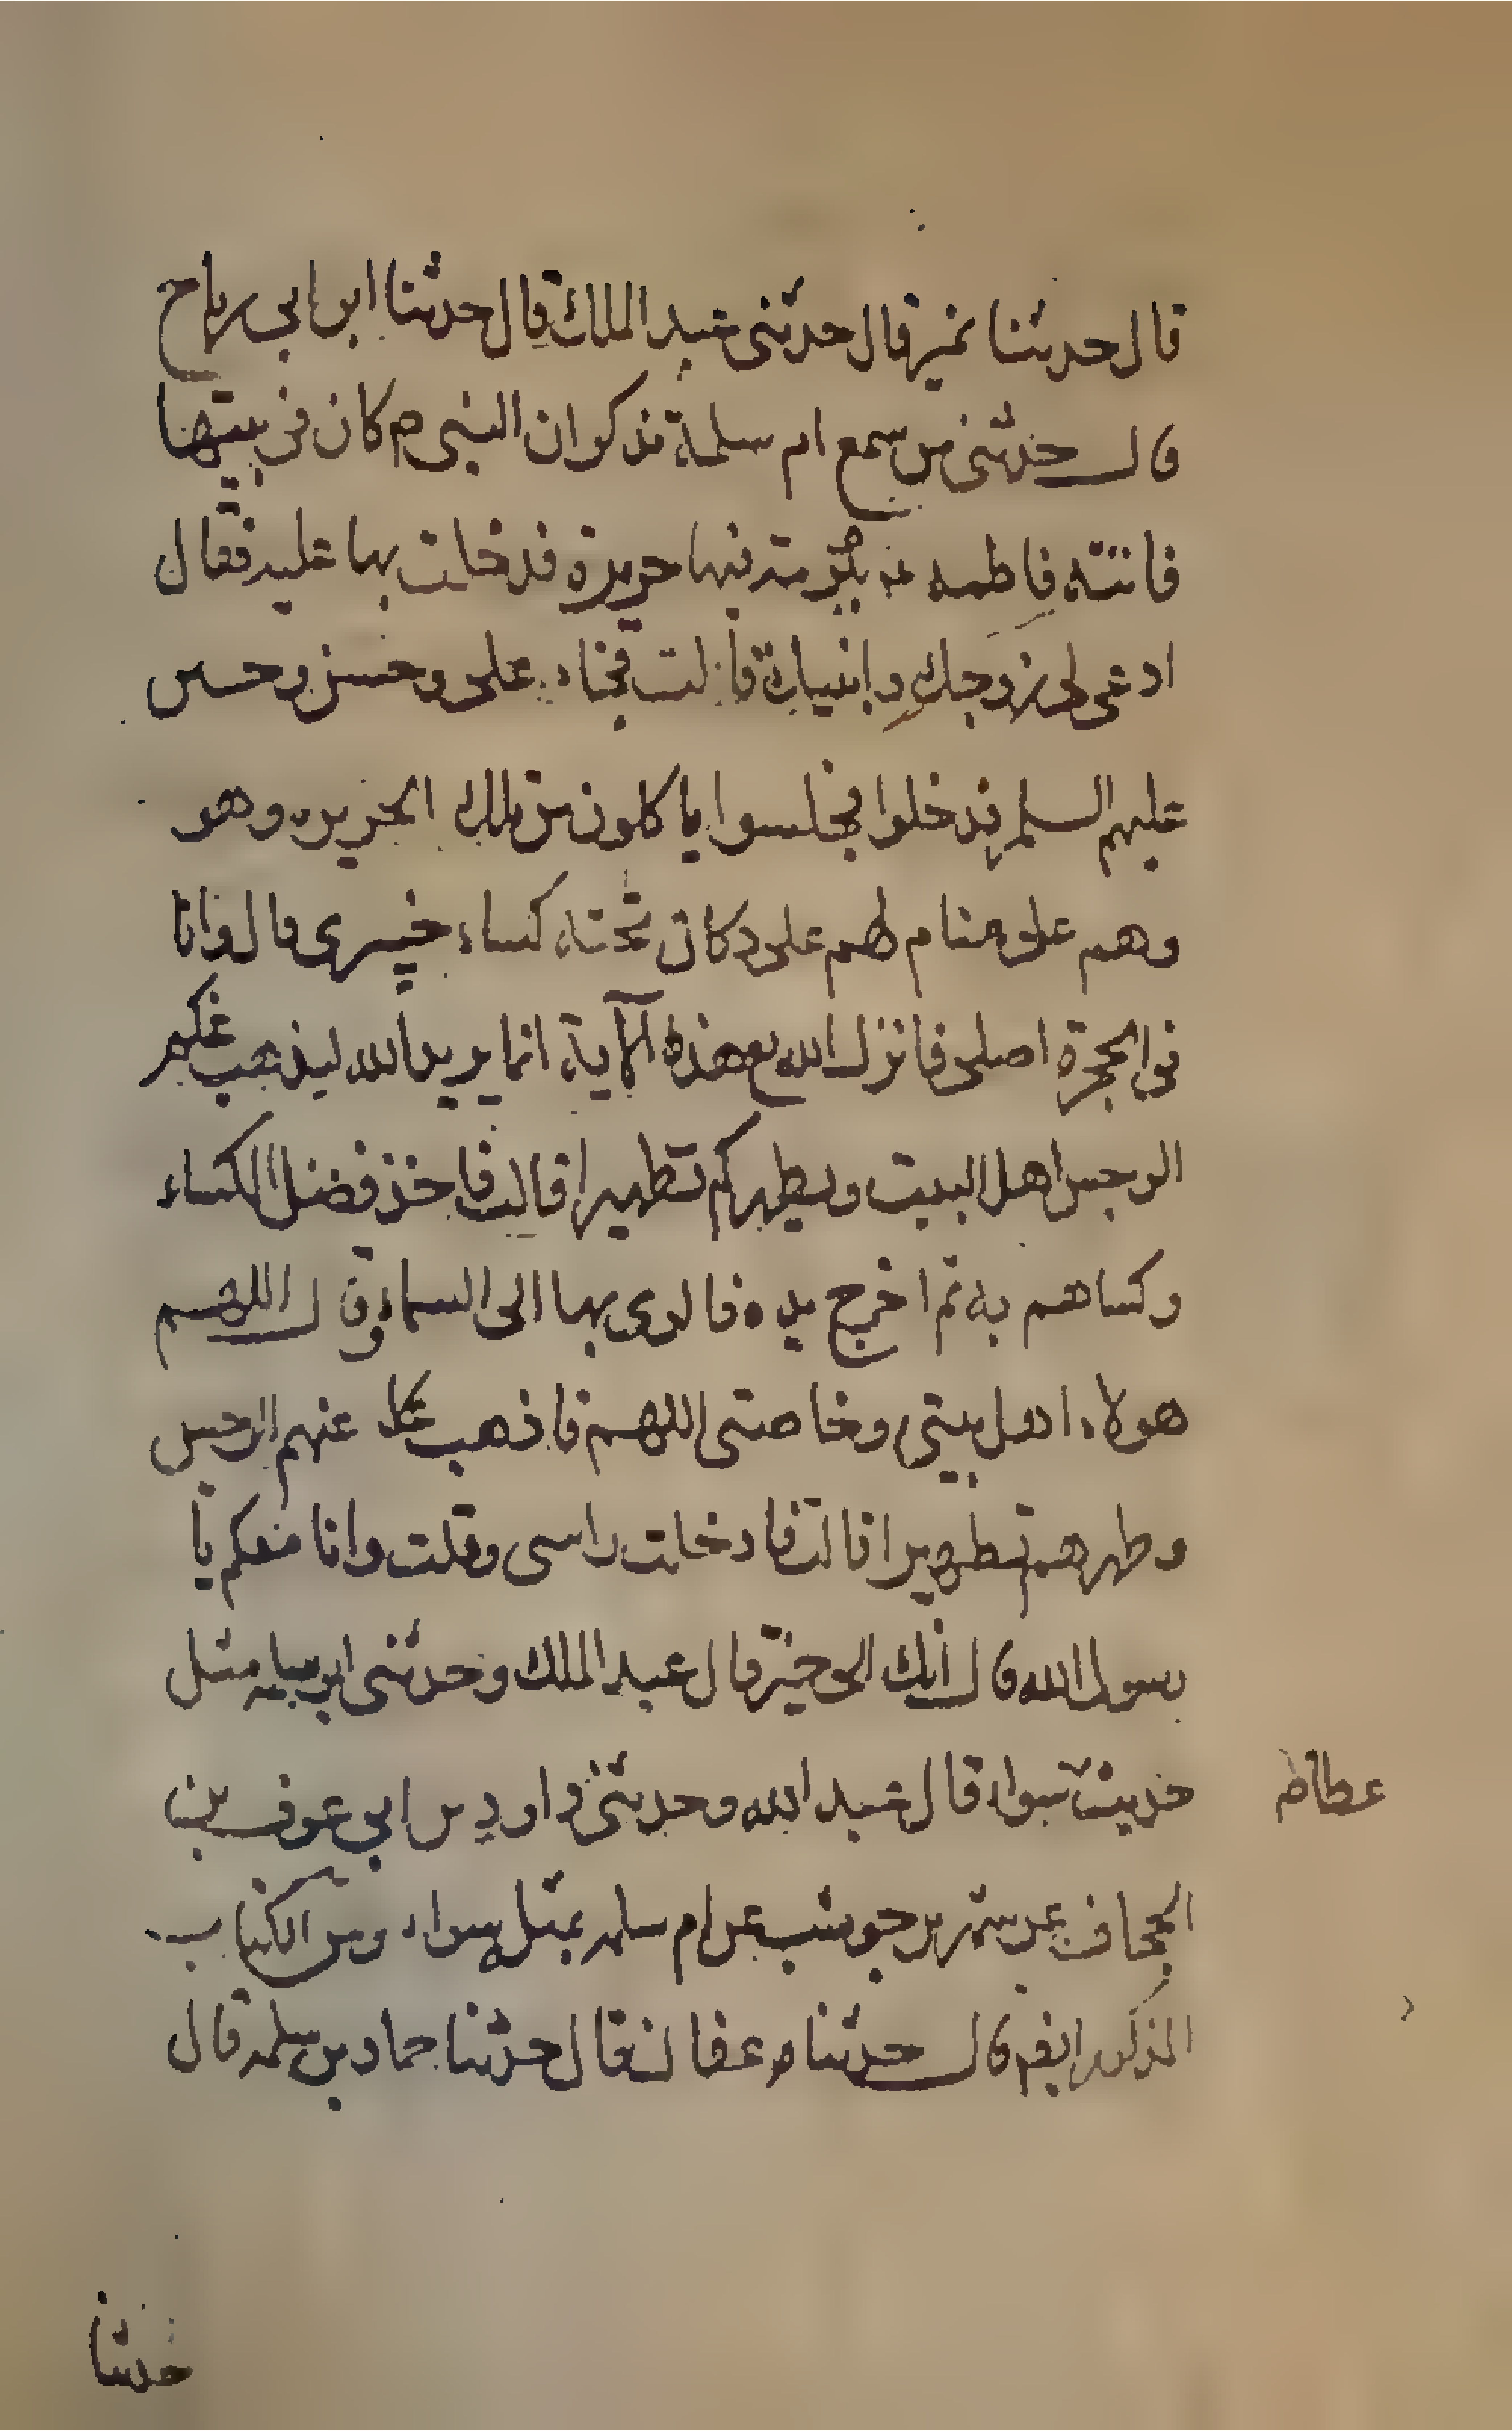 قال حدثنا نمير قال حدثنى عبد الملك قال حدثنا ابن ابى رباح
قال حدثنى من سمع ام سلمة تذكر ان النبى ص كان فى بيتها
فاتته فاطمه ببرمة فيها حريرة فدخلت بها عليه فقال
ادعى لى زوجك وابنيك قالت فجاء على وحسن وحسين
عليهم السلم فدخلوا فجلسوا ياكلون من تلك الحريره وهو
وهم على منام لهم على دكان تحته كساء خيبرى قال وانا
فى الحجرة اصلى فانزل الله تع هذه الآية انما يريد الله ليذهب عنكم
الرجس اهل البيت ويطهركم تطهيرا قالت فاخذ فضل الكساء
وكساهم به ثم اخرج يده فالوى بها الى السماء وقال اللهم
هولاء اهل بيتى وخاصتى اللهم فاذهب عنهم الرجس
وطهرهم تطهيرا قالت فادخلت راسى وقلت وانا معكم يا
رسول الله قال انك الى خير قال عبد الملك وحدثنى ابو مثل
حديث سواء قال عبد الله وحدثنى داود بن ابى عوف بن
عطا
الحجاف عن شهر بن حوشب عن ام سلمه بمثل سواء ومن الكتاب
المذكور ايضا قال حدثنا عفان قال حدثنا حماد بن سلمه قال
حدثنا